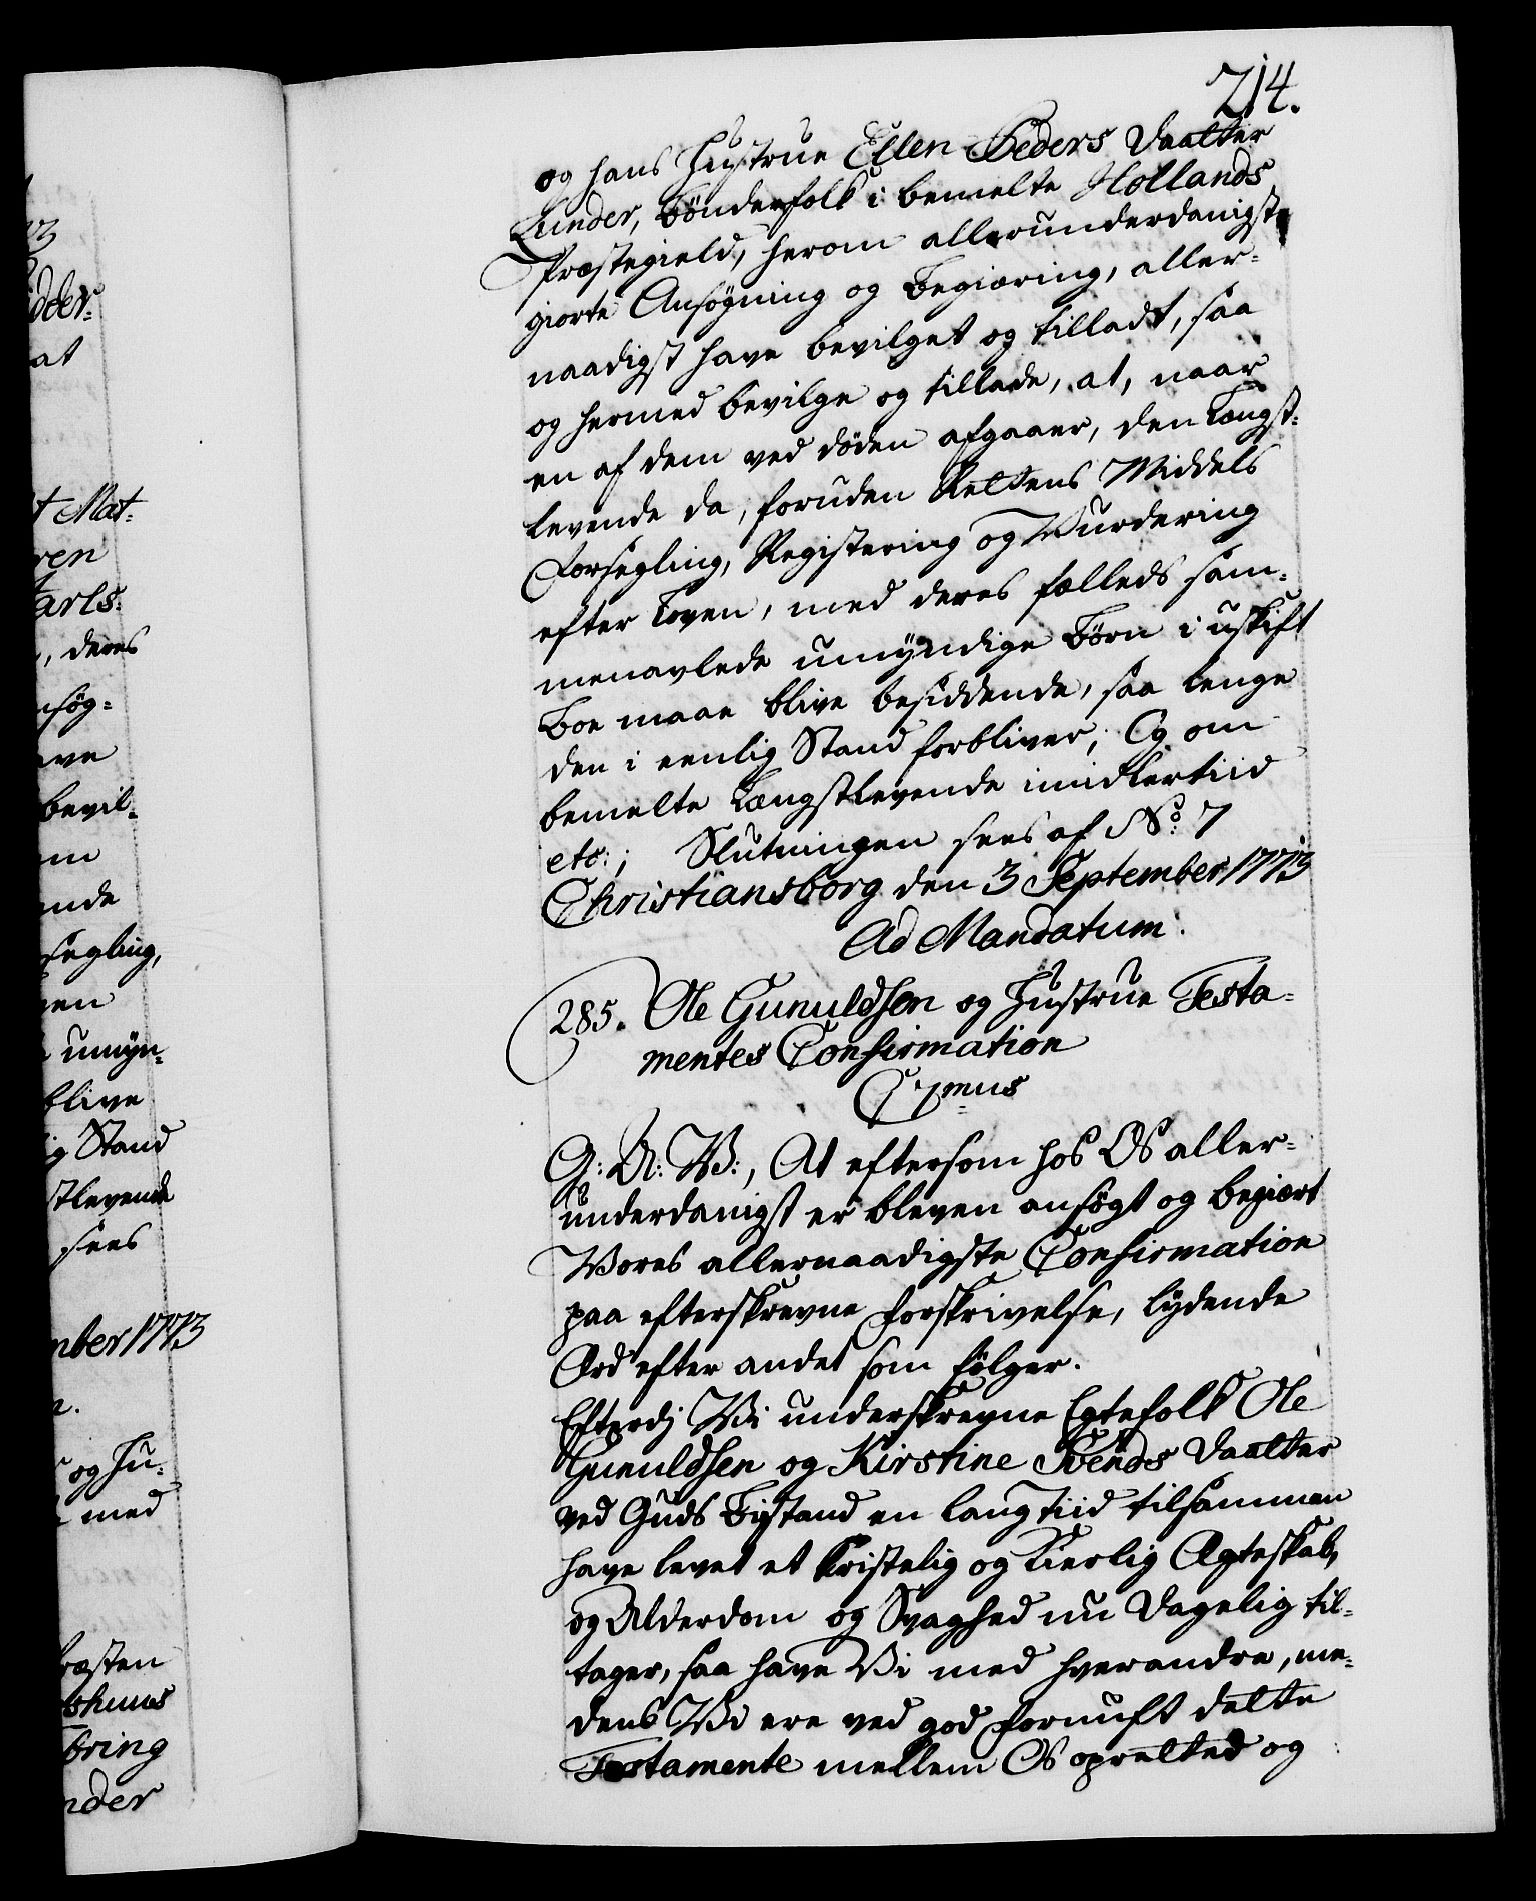 214.
og hans Hustrue Ellen Peders Daatter
Lunder, bönderfolk i bemelte Hollands
Præstegield, herom allerunderdanigst
giorte Ansøgning og Begiæring, aller-
naadigst have bevilget og tilladt, saa
og hermed bevilge og tillade, at, naar
en af dem ved døden afgaaer, den Længst-
levende da, foruden Rettens Middels
Forsegling, Registering og Vurdering
efter Loven, med deres fælleds sam-
menavlede umyndige Børn i uskift
Boe maae blive besiddende, saa lenge
den i eenlig Stand forbliver, Og om
bemelte Længstlevende imidlertiid
etc:, Slutningen sees af No: 7
Christiansborg den 3 September 1773
Ad Mandatum.
285. Ole Gunuldsen og Hustrue Testa-
mentes Confirmation
C 7mus
G: A: V:, At eftersom hos Os aller-
underdanigst er bleven ansøgt og begiært
Vores allernaadigste Confirmation
paa efterskrevne Forskrivelse, lydende
Ord efter andet som følger.
Efterdj Vi underskrevne Egtefolk Ole
Gunuldsen og Kirstine Svends Daatter
ved Guds Bistand en lang Tiid tilsammen
have levet et Kristelig og Kierlig Ægteskab,
og Alderdom og Svaghed nu Dagelig til-
tager, saa have Vi med hverandre, me-
dens Vi ere ved god Fornuft dette
Testamente mellem Os opretted og
13
dder-
at
t Mat-
ren
arls-
, deres
nsøg-
ave
bevil-
em
ende
segling,
en
umyn-
blive
ig Stand
stlevende
sees
mber 1773
n.
og Hu-
med
ræsten
shuus
bring
nder